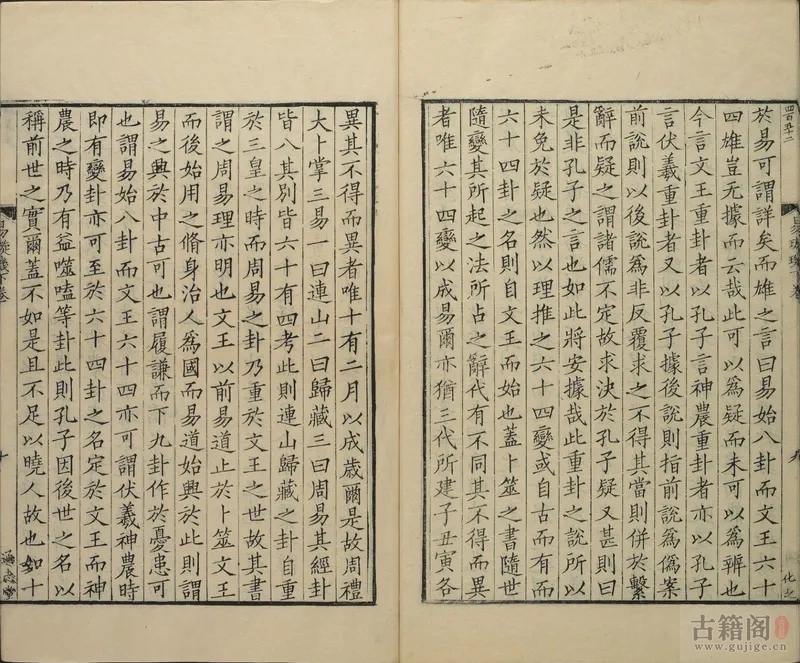 於易可謂詳矣而雄之言曰易始八卦而文王六十
四雄豈无據而云哉此可以為疑而未可以為辨也
今言文王重卦者以孔子言神農重卦者亦以孔子
言伏羲重卦者又以孔子據後說則指前說為偽案
前說則以後說為非反覆求之不得其當則併於繫
辭而疑之謂諸儒不定故求決於孔子疑又甚則曰
是非孔子之言也如此將安據哉此重卦之說所以
未免於疑也然以理推之六十四變或自古而有而
六十四卦之名則自文王而始也蓋卜筮之書隨世
隨變其所起之法所占之辭代有不同其不得而異
者唯六十四變以成易爾亦猶三代所建子丑寅各
異其不得而異者唯十有二月以成歲爾是故周禮
大卜掌三易一曰連山二曰歸藏三曰周易其經卦
皆八其別皆六十有四考此則連山歸藏之卦自重
於三皇之時而周易之卦乃重於文王之世故其書
謂之周易理亦明也文王以前易道止於卜筮文王
而後始用之脩身治人為國而易道始興於此則謂
易之興於中古可也謂履謙而下九卦作於憂患可
也謂易始八卦而文王六十四亦可謂伏羲神農時
即有變卦亦可至於六十四卦之名定於文王而神
農之時乃有益噬嗑等卦此則孔子因後世之名以
稱前世之實爾蓋不如是且不足以曉人故也如十
易璇璣下卷
十
通志堂
古籍阁
www.gujige.cn